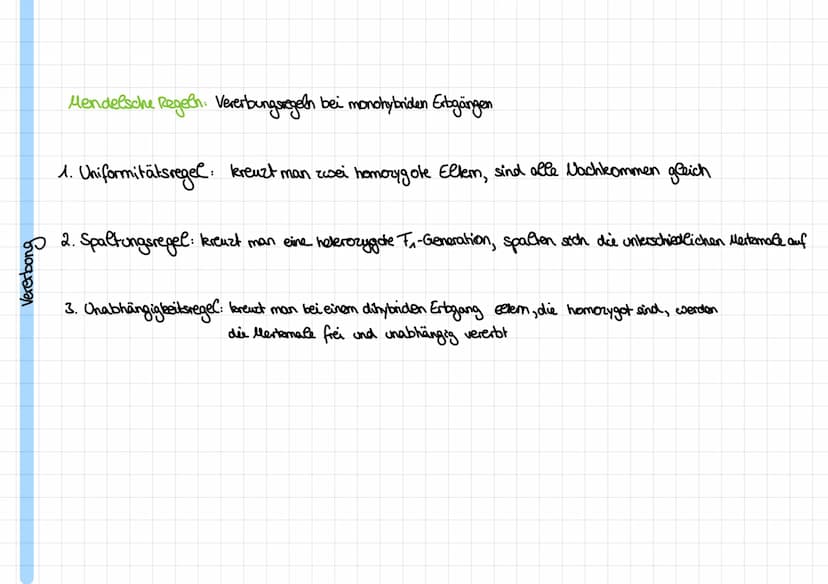 Mendelsche Regeln: Vererbungsregeln bei monohybriden Erbgängen
1. Uniformitätsregel: kreuzt man zwei homozygote Eltern, sind alle Nachkommen gleich
Vererbung
2. Spaltungsregel: kreuzt man eine heterozygote F₁-Generation, spalten sich die unterschiedlichen Merkmale auf
3. Unabhängigkeitsregel: kreuzt man bei einem dihybriden Erbgang eltern, die homozygot sind, werden
die Merkmale frei und unabhängig vererbt